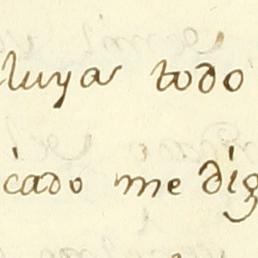 luyas todo
icado me dig